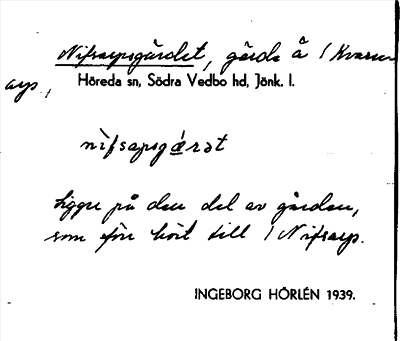 Nifsarpsgärdet, gärde å 1 Kvarn-
arp,
Höreda sn, Södra Vedbo hd, Jönk. l.
nìfsapsgǽrət
Ligger på den del av gården,
som förr hört till 1 Nifsarp.
INGEBORG HÖRLÉN 1939.